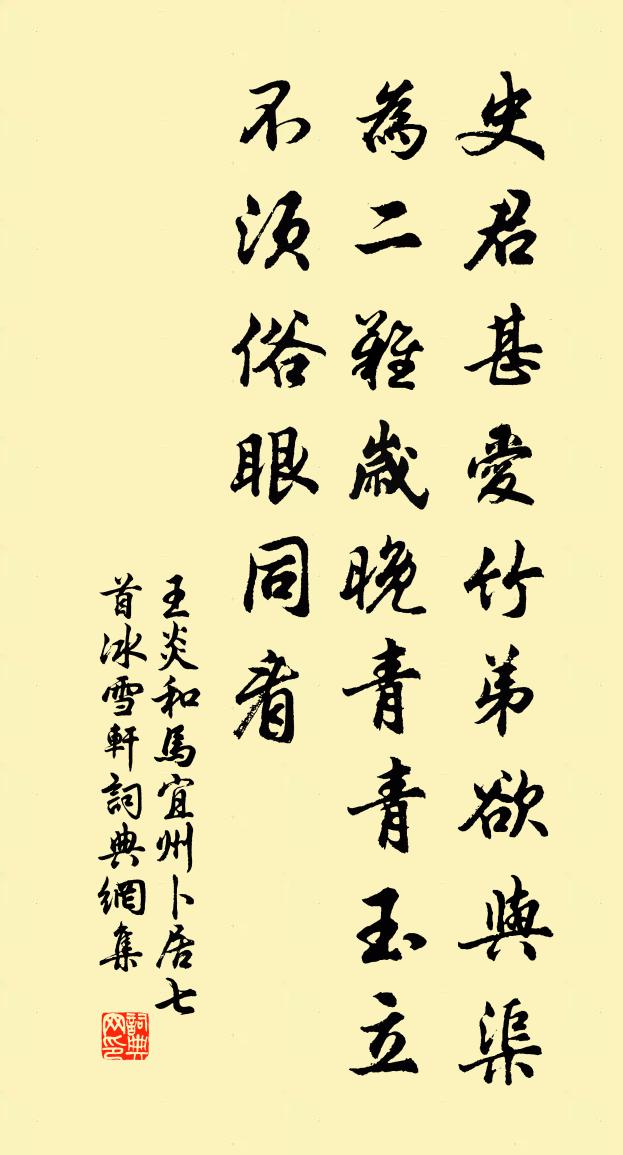 史君甚愛竹弟欲與渠
為二難歲晚青青玉立
不須俗眼同看
王炎和馬宜州卜居七
首冰雪軒詞典網集
詞典
网印